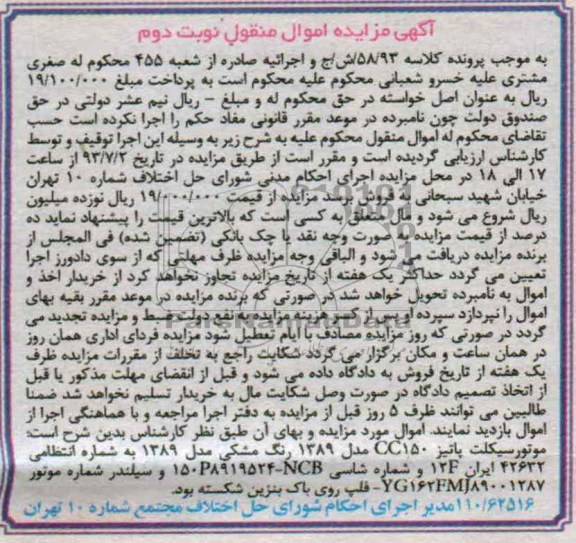 آگهی مزایده اموال منقول نوبت دوم
به موجب پرونده کلاسه ۵۸/۹۳/ش/ج و اجرائیه صادره از شعبه ۴۵۵ محکوم له صغری
مشتری علیه خسرو شعبانی محکوم علیه محکوم است به پرداخت مبلغ ۱۹/۱۰۰/۰۰۰
ریال به عنوان اصل خواسته در حق محکوم له و مبلغ - ریال نیم عشر دولتی در حق
صندوق دولت چون نامبرده در موعد مقرر قانونی مفاد حکم را اجرا نکرده است حسب
تقاضای محکوم له اموال منقول محکوم علیه به شرح زیر به وسیله این اجرا توقیف و توسط
کارشناس ارزیابی گردیده است و مقرر است از طریق مزایده در تاریخ ۹۳/۷/۲ از ساعت
۱۷ الی ۱۸ در محل مزایده اجرای احکام مدنی شورای حل اختلاف شماره ۱۰ تهران
خیابان شهید سبحانی به فروش برسد مزایده از قیمت ۱۹/۰۰۰/۰۰۰ ریال نوزده میلیون
ریال شروع می شود و مال متعلق به کسی است که بالاترین قیمت را پیشنهاد نماید ده
درصد از قیمت مزایده به صورت وجه نقد یا چک بانکی (تضمین شده) فی المجلس از
برنده مزایده دریافت می شود و الباقی وجه مزایده ظرف مهلتی که از سوی دادورز اجرا
تعیین می گردد حداکثر یک هفته از تاریخ مزایده تجاوز نخواهد کرد از خریدار اخذ و
اموال به نامبرده تحویل خواهد شد در صورتی که برنده مزایده در موعد مقرر بقیه بهای
اموال را نپردازد سپرده او پس از کسر هزینه مزایده به نفع دولت ضبط و مزایده تجدید می
گردد در صورتی که روز مزایده مصادف با ایام تعطیل شود مزایده فردای اداری همان روز
در همان ساعت و مکان برگزار می گردد شکایت راجع به تخلف از مقررات مزایده ظرف
یک هفته از تاریخ فروش به دادگاه داده می شود و قبل از انقضای مهلت مذکور یا قبل
از اتخاذ تصمیم دادگاه در صورت وصل شکایت مال به خریدار تسلیم نخواهد شد ضمنا
طالبین می توانند ظرف ۵ روز قبل از مزایده به دفتر اجرا مراجعه و با هماهنگی اجرا از
اموال بازدید نمایند. اموال مورد مزایده و بهای آن طبق نظر کارشناس بدین شرح است:
موتورسیکلت پاتیز CC۱۵۰ مدل ۱۳۸۹ رنگ مشکی مدل ۱۳۸۹ به شماره انتظامی
۴۲۶۳۲ ایران ۱۲۴ و شماره شاسی ۱۵۰P۸۹۱۹۵۲۴-NCB و سیلندر شماره موتور
YG۱۶۲FMJ۸۹۰۰۱۲۸۷- قلپ روی باک بنزین شکسته بود.
۱۱۰/۶۲۵۱۶ مدیر اجرای احکام شورای حل اختلاف مجتمع شماره ۱۰ تهران